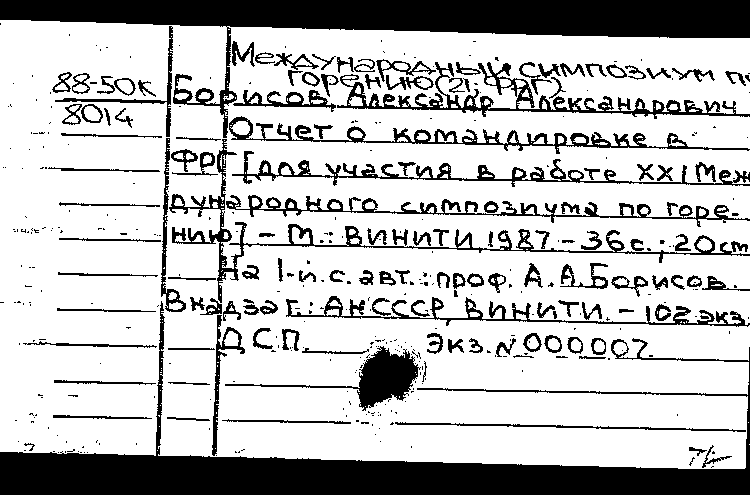 Международный симпозиум п
горению (21; ФРГ).
88-50К
8014
Борисов, Александр Александрович
Отчет о командировке в
ФРГ [для участия в работе XXI Меж
дународного симпозиума по горе-
нию] - М.: ВИНИТИ, 1987. - 36 с.; 20 ст
На 1-й с. авт.: проф. А.А. Борисов.
В надзаг.: АН СССР, ВИНИТИ. - 102 экз.
ДСП. Экз. N 000007.